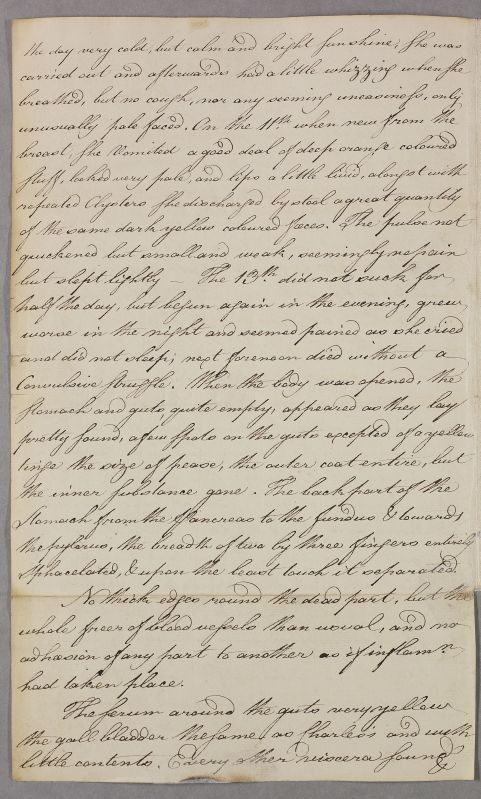 the day very cold, but calm and bright sunshine; She was
carried out and afterwards had a little whizzing when she
breathed, but no cough, nor any seeming uneasiness, only
unusually pale faced. On the 11th when new from the
breast, she Vomited a good deal of deep orange coloured
stuff, looked very pale, and lips a little livid, alongst with
repeated Clysters she discharged by stool a great quantity
of the same dark yellow coloured faeces. The pulse not
quickened but small and weak, seemingly no pain
but slept lightly — The 13th did not suck for
half the day, but begun again in the evening, grew
worse in the night and seemed pained as she cried
and did not sleep; next forenoon died without a
Convulsive struggle. When the body was opened, the
Stomach and guts quite empty, appeared as they lay
pretty sound, a few spots on the guts excepted of a yellow
tinge the size of pease, the outer coat entire, but
the inner substance gone. The back part of the
Stomach from the Pancreas to the fundus & towards
the pylorus, the breadth of two by three fingers entirely
Sphacelated, & upon the least touch it separated.
No thick edges round the dead part, but the
whole freer of blood vessels than usual, and no
adhæsion of any part to another as if inflamn.
had taken place.
The serum around the guts very yellow
the gall bladder the same as Charles's and with
little contents. Every other viscera sound